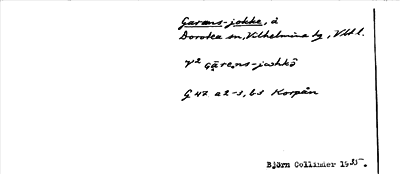 Garens-jokke, å
Dorotea sn, Vilhelmina tg, Vtbl.
V² gärens-jåhkō
G 47 a 2-3, b 3 Korpån
Björn Collinder 1935.